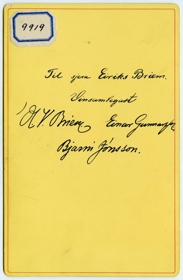 9919
Til séra Eiríks Briem.
Vinsamlegast
V. Briem Einar Gunnarsson
Bjarni Jónsson.